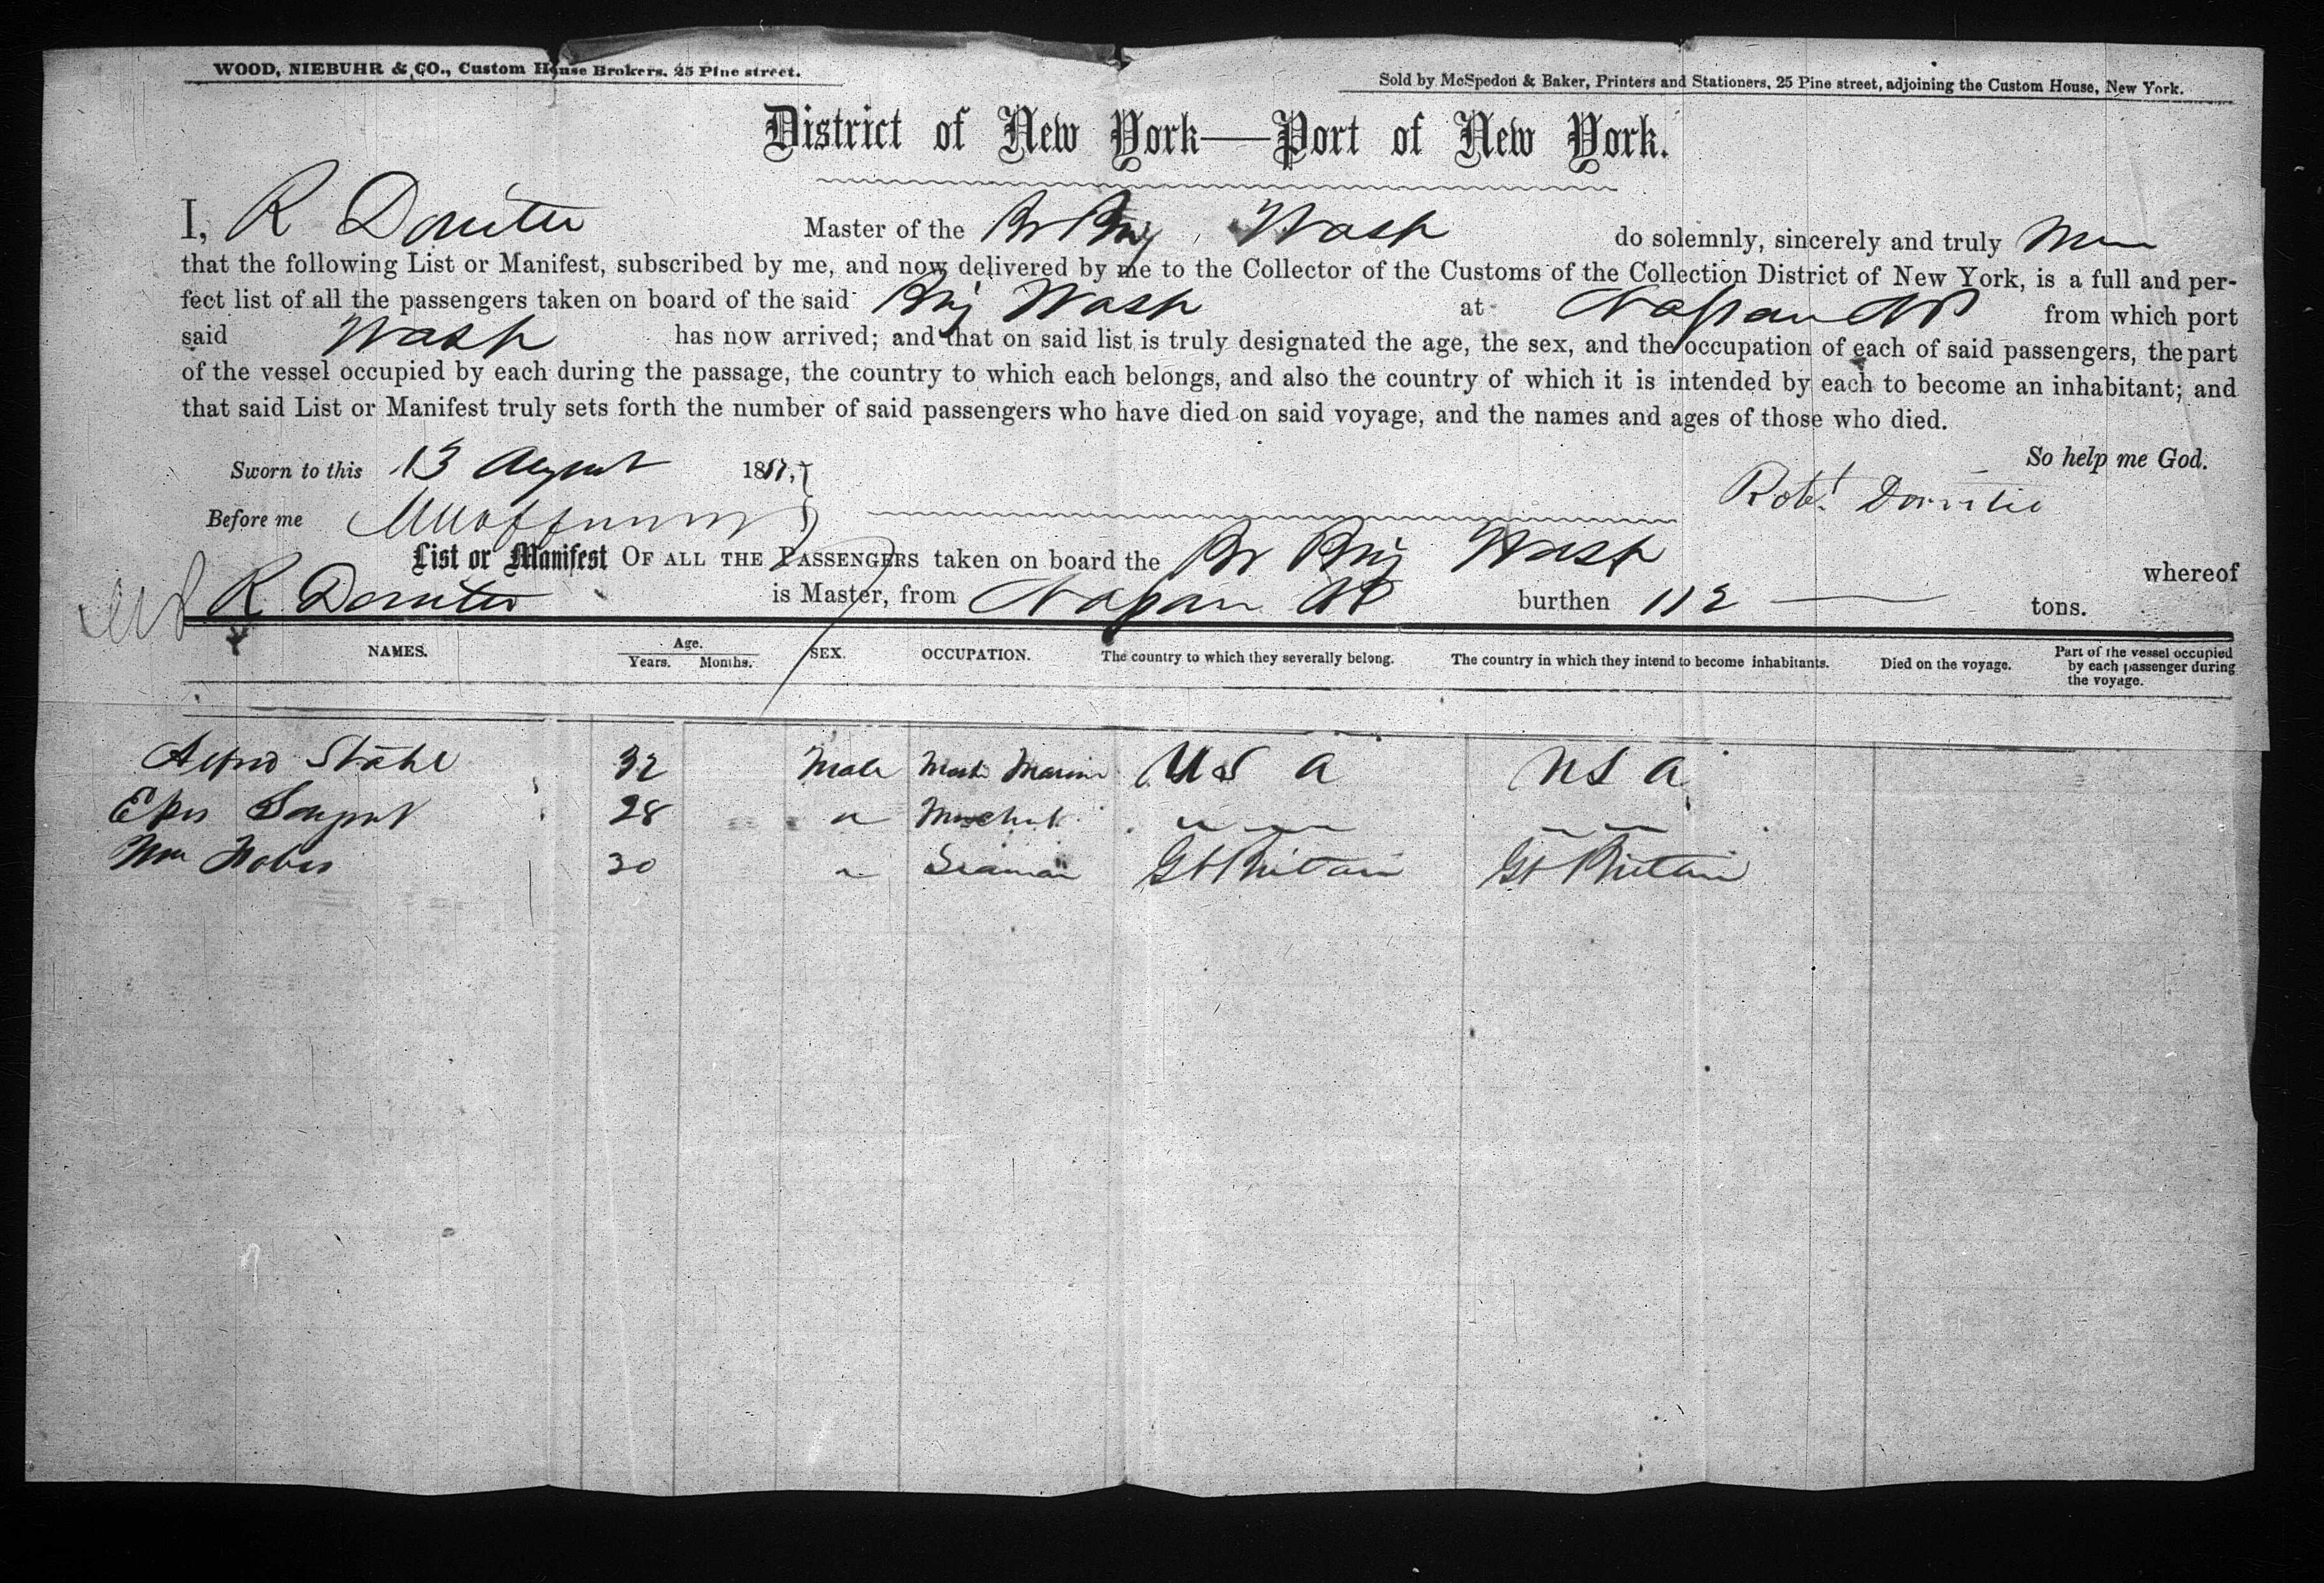 WOOD, NIEBUHR & CO., Custom House Brokers. 25 Pine street.
Sold by McSpedon & Baker, Printers and Stationers, 25 Pine street, adjoining the Custom House, New York.
District of New York—Port of New York.
I, R Master of the Br Brig Wasp do solemnly, sincerely and truly
that the following List or Manifest, subscribed by me, and now delivered by me to the Collector of the Customs of the Collection District of New York, is a full and per-
fect list of all the passengers taken on board of the said Brig Wasp at Nassau NP from which port
said Wasp has now arrived; and that on said list is truly designated the age, the sex, and the occupation of each of said passengers, the part
of the vessel occupied by each during the passage, the country to which each belongs, and also the country of which it is intended by each to become an inhabitant; and
that said List or Manifest truly sets forth the number of said passengers who have died on said voyage, and the names and ages of those who died.
So help me God.
Sworn to this 13 August 18
Robt.
Before me
List or Manifest OF ALL THE PASSENGERS taken on board the Br Brig Wasp whereof
R is Master, from Nassau NP burthen 112 tons.
NAMES. Age. Years. Months. SEX. OCCUPATION. The country to which they severally belong. The country in which they intend to become inhabitants. Died on the voyage. Part of the vessel occupied by each passenger during the voyage.
Alfred Stahl 32 Male Mast Marine U S A U S A
28 " " " " " "
Wm 30 " Seaman Gt Britain Gt Britain